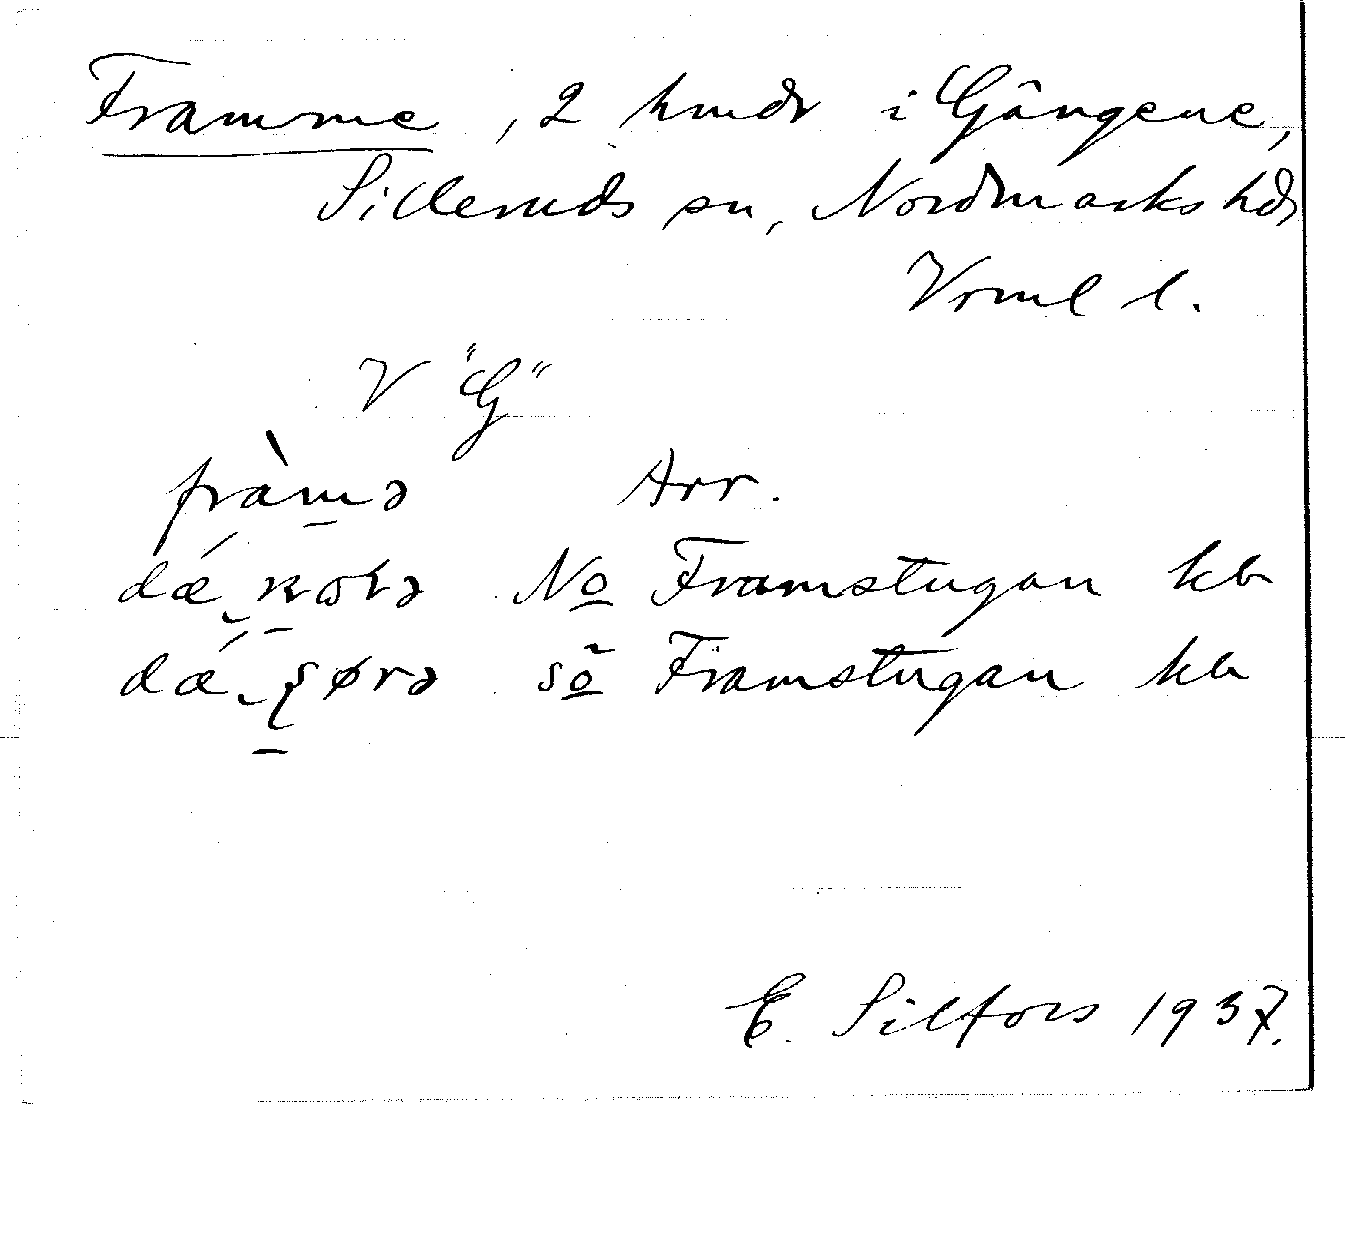 Framme, 2 hmdr i Gängene,
Silleruds sn, Nordmarks hd,
Vrml l.
V "G"
fràmə Arr.
dǽ nɷrə No Framstugan kb
dǽ ʂørə sö Framstugan kb
E. Silfors 1937.